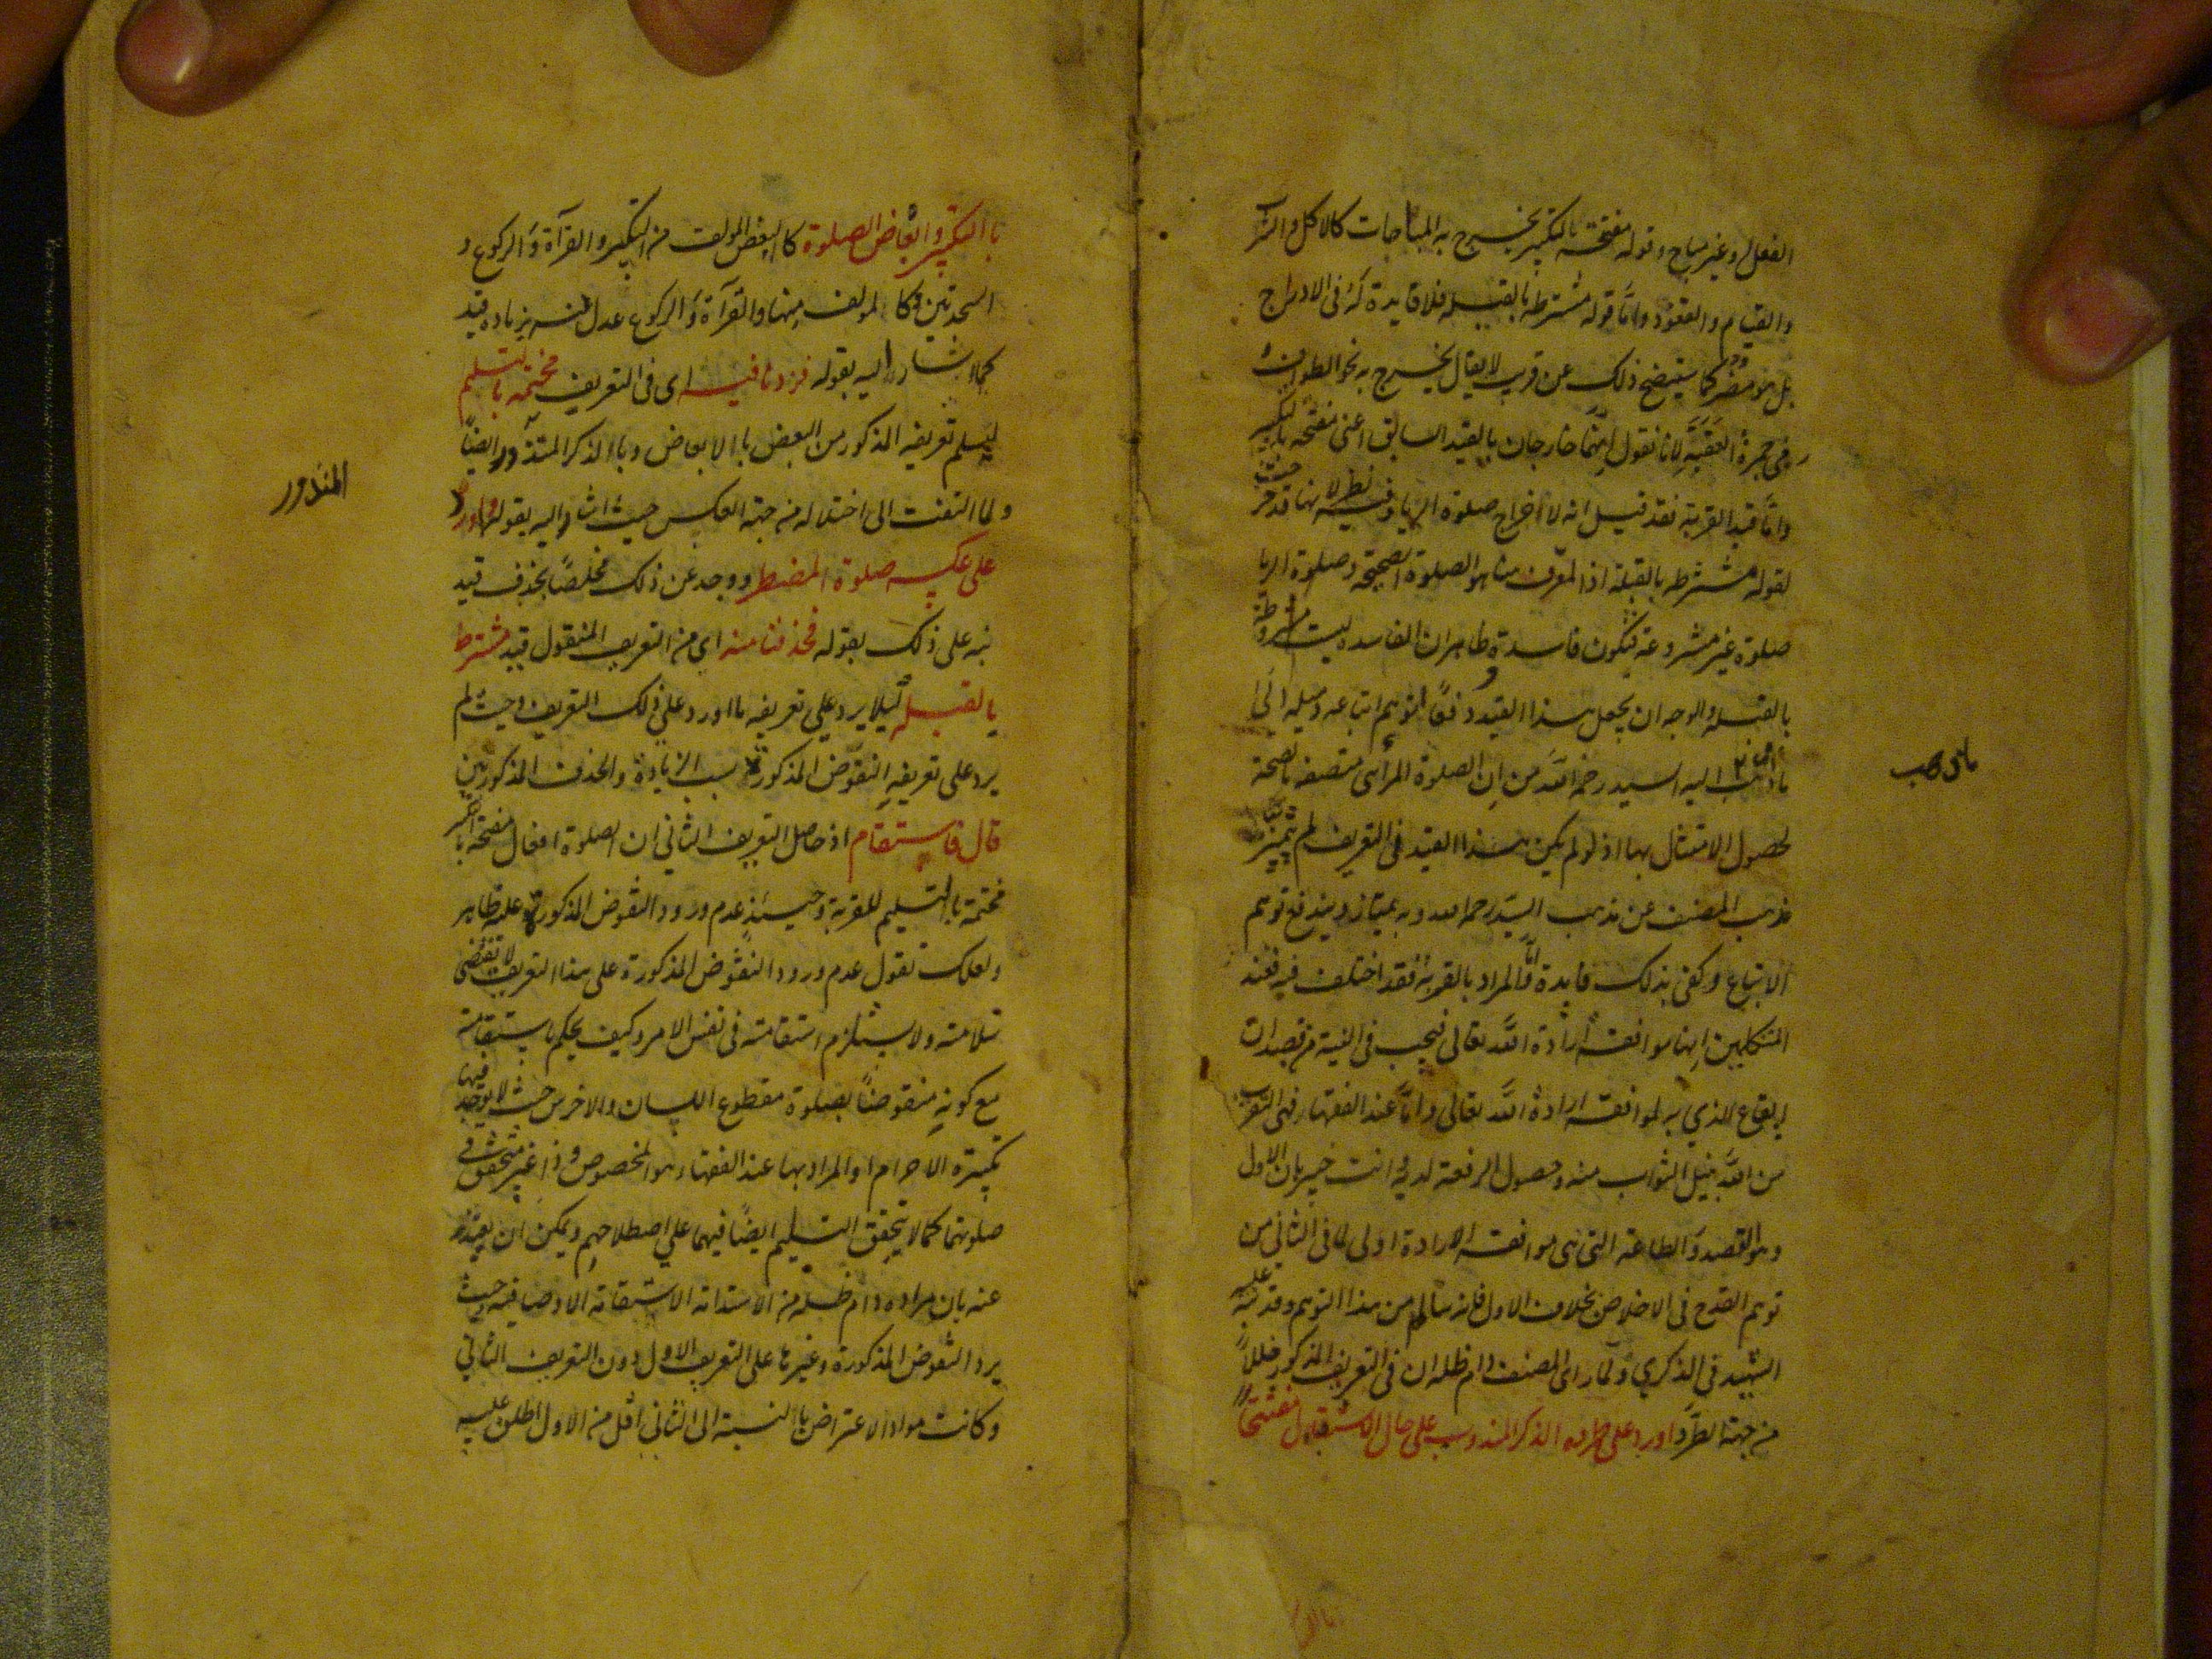 الفعل وغير مباح وقوله مفتتحة بالتكبير يخرج به المباحات كالاكل والشرب
والقيام والقعود واما قوله مشترطه بالقبلة فلا فايدة له فى الادراج
بل هو مضر كما سيتضح ذلك عن قريب لا يقال يخرج به نحو الطواف
رمى جمرة العقبة لانا نقول انهما خارجان بالقيد السابق اعنى مفتتحه بالتكبير
واما قيد القربة فقد قيل انه لاخراج صلوة الريا وفيه نظر لانها قد خرجت
لقوله مشترطه بالقبلة اذ المعرف هنا هو الصلوة الصحيحة وصلوة الريا
صلوة غير مشروعة فتكون فاسدة وظاهر ان الفاسده ليست مشروطة
بالقبلة والوجه ان يجعل هذا القيد دفعا لتوهم اتباعه وميله الى
ما ذهب اليه السيد رحمه الله من ان الصلوة المرائى متصفه بالصحة
ما ذهب
لحصول الامتثال بها اذ لو لم يكن هذا القيد فى التعريف لم يتميز
مذهب المصنف عن مذهب السيد رحمه الله وبه يمتاز ويندفع توهم
الاتباع وكفى بذلك فايدة واما المراد بالقربة فقد اختلف فيه فعند
المتكلمين انها موافقة ارادة الله تعالى فيجب فى النية من قصد ان
ايقاع الذي به لموافقة ارادة الله تعالى واما عند الفقهاء فهى التقرب
من الله بنيل الثواب منه وحصول الرفعة لديه وانت خبير بان الاول
وهو القصد والطاعة التى هى موافقة الارادة اولى لما فى الثانى من
توهم القدح فى الاخلاص بخلاف الاول فانه سالم من هذا التوهم وقد نبه عليه
الشهيد فى الذكري ولما راى المصنف دام ظله ان فى التعريف المذكور خللا
من جهة الطرد اورد على طرده الذكر المندوب على حال الاستقبال مفتتحا
بالتكبير وابعاض الصلوة كالبعض المولف من التكبير والقرآة والركوع و
السجدتين وكالمولف منها والقرآة والركوع عدل عنه بزياده قيد
كما اشار اليه بقوله فزدنا فيه اى فى التعريف مختتمة بالتسليم
ليسلم تعريفه المذكور من البعض بالابعاض وبالذكر المنذور ايضا
المنذور
ولما التفت الى اختلاله من جهة العكس حيث اشار اليه بقوله واورد
على عكسه صلوة المضطر ووجد عن ذلك مخلصا بحذف قيد
نبه على ذلك بقوله فحذفنا منه اى من التعريف المنقول قيد مشترط
بالقبلة ليلا يرد على تعريفه ما اورد على ذلك التعريف وحيث لم
يرد على تعريفه النقوض المذكورة بسبب الزيادة والحذف المذكورتين
قال فاستقام اذ حاصل التعريف الثانى ان الصلوة افعال مفتتحة بالتكبير
مختتمة بالتسليم للقربة وحينئذ عدم ورود النقوض المذكورة عليه ظاهر
ولعلك تقول عدم ورود النقوض المذكورة على هذا التعريف لا تقتضى
سلامته ولا يستلزم استقامته فى نفس الامر وكيف يحكم باستقامته
مع كونه منقوضا بصلوة مقطوع اللسان والاخرس حيث لا يوجد فيها
تكبيرة الاحرام اذ المراد بها عند الفقهاء هو المخصوص وذا غير متحقق فى
صلوتهما كما لا يتحقق التسليم ايضا فيهما على اصطلاحهم ويمكن ان يعتذر
عنه بان مراده دام ظله من الاستقامة الاستقامة الاضافية وحيث
يرد النقوض المذكورة وغيرها على التعريف الاول دون التعريف الثانى
وكانت مواد الاعتراض بالنسبة الى الثانى اقل من الاول اطلق عليه
بالتكبير